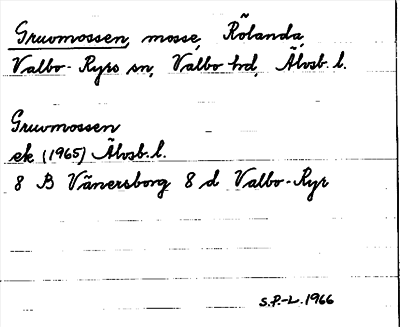 Gruvmossen, mosse, Rölanda,
Valbo-Ryrs sn, Valbo hd, Älvsb. l.
Gruvmossen
ek (1965) Älvsb. l.
8 B Vänersborg 8 d Valbo-Ryr
S.P.-L. 1966